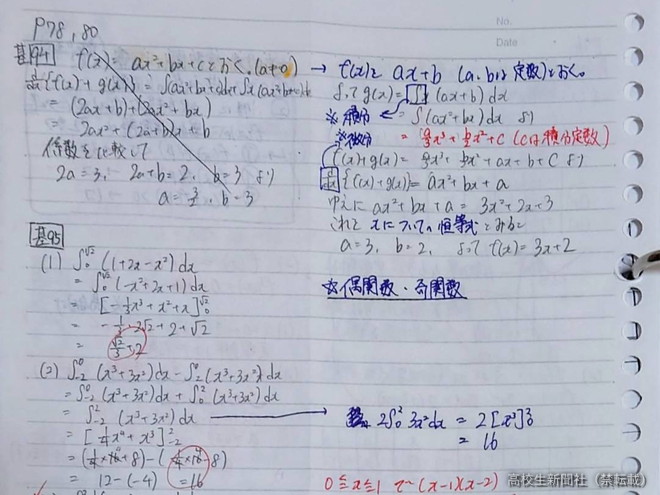 No.
Date
P78, 80
基94 f(x) = ax²+bx+c とおく。(a≠0)
= (2ax+b)+(2ax²+bx)
= 2ax²+(2a+b)x+b
係数を比較して
2a=3, 2a+b=2, b=3 より
a=3/2, b=3
→ f(x)を ax+b (a, bは定数)とおく。
よって g(x)=∫x(ax+b)dx
☆積分 = ∫(ax²+bx)dx より
☆微分 = a/3x³+b/2x²+C (Cは積分定数)
f(x)+g(x)= a/3x³+b/2x²+ax+b+C より
d/dx{f(x)+g(x)}=ax²+bx+a
ゆえに ax²+bx+a = 3x²+2x+3
これを xについての恒等式とみると
a=3, b=2, よって f(x)=3x+2
基95
(1) ∫₀^√2 (1+2x-x²)dx
= ∫₀^√2 (-x²+2x+1)dx
= [-1/3x³+x²+x]₀^√2
= -1/3・2√2+2+√2
= √2/3+2
☆偶関数・奇関数
(2) ∫₋₂⁰ (x³+3x²)dx - ∫₂⁰ (x³+3x²)dx
= ∫₋₂⁰ (x³+3x²)dx + ∫₀² (x³+3x²)dx
= ∫₋₂² (x³+3x²)dx
→ 2∫₀² 3x²dx = 2[x³]₀²
= 16
= [1/4x⁴+x³]₋₂²
= (1/4×16+8)-(1/4×16-8)
= 12-(-4) =16
0≦x≦1 で -(x-1)(x-2)
高校生新聞社（禁転載）